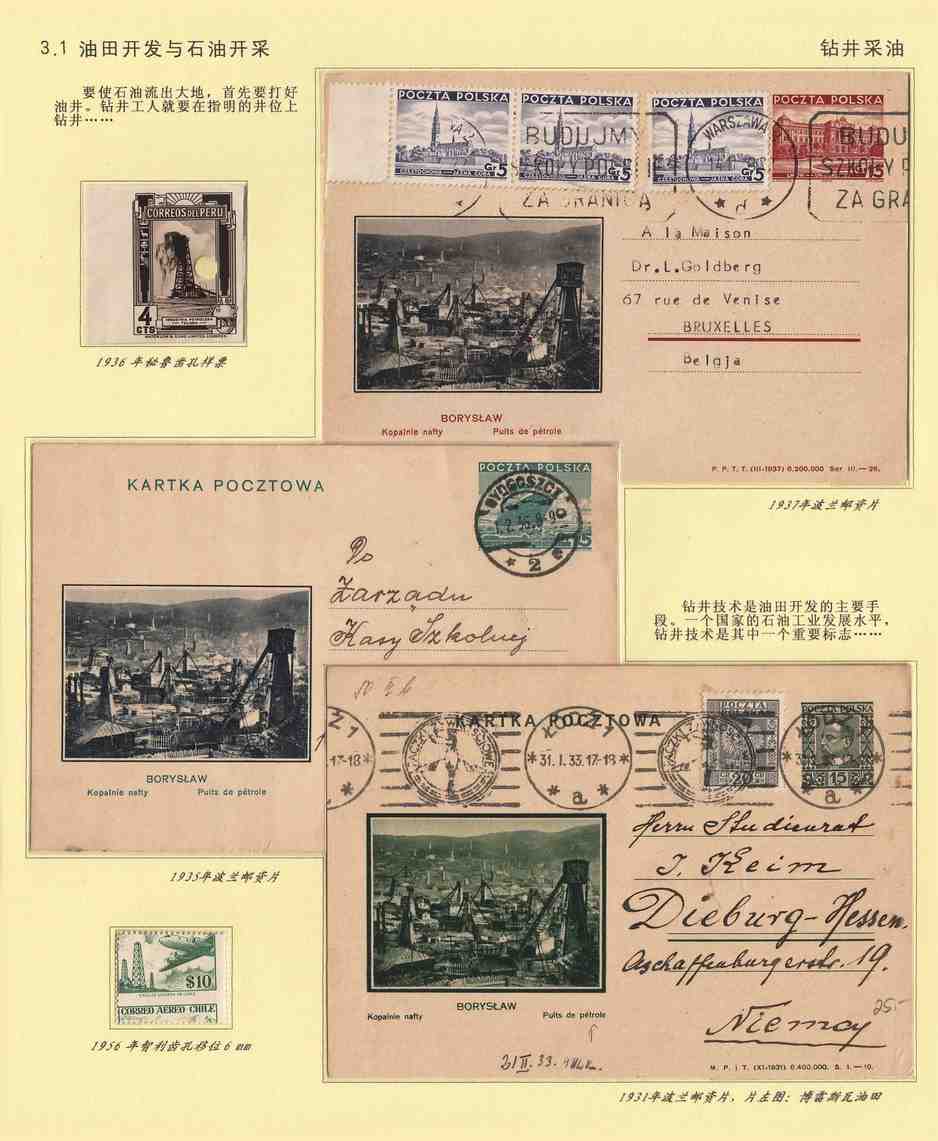 3.1 油田开发与石油开采
钻井采油
要使石油流出大地，首先要打好
油井。钻井工人就要在指明的井位上
钻井……
CORREOS DEL PERU
4
CTS
INDUSTRIA PETROLERA
TALARA
1936 年秘鲁齿孔样票
POCZTA POLSKA
POCZTA POLSKA
POCZTA POLSKA
POCZTA POLSKA
CZĘSTOCHOWA — JASNA GÓRA Gr 5
CZĘSTOCHOWA — JASNA GÓRA Gr 5
CZĘSTOCHOWA — JASNA GÓRA Gr 5
Gr 15
WARSZAWA
BUDUJMY
ZA GRANICĄ
BUDU
SZKOŁY P
ZA GRA
A la Maison
Dr.L.Goldberg
67 rue de Venise
BRUXELLES
Belgja
BORYSŁAW
Kopalnie nafty Puits de pétrole
P. P. T. T. (III-1937) 6.200.000 Ser III.—26.
1937年波兰邮资片
KARTKA POCZTOWA
POCZTA POLSKA
BYDGOSZCZ
2
15
Do
Zarządu
Kasy Szkolnej
BORYSŁAW
Kopalnie nafty Puits de pétrole
1935年波兰邮资片
钻井技术是油田开发的主要手
段。一个国家的石油工业发展水平，
钻井技术是其中一个重要标志……
KARTKA POCZTOWA
POCZTA
20
POCZTA POLSKA
15
ŁÓDŹ 1
*31. I. 33. 17-18*
* a *
Herrn Studienrat
J. Keim
Dieburg-Hessen.
Aschaffenburgerstr. 19.
Niemcy
25.-
BORYSŁAW
Kopalnie nafty Puits de pétrole
21 II. 33.
M. P. i T. (XI-1931) 6.400.000. S. I.—10.
1931年波兰邮资片，片左图：博雷斯瓦油田
$10
CORREO AEREO CHILE
1956 年智利齿孔移位6 mm